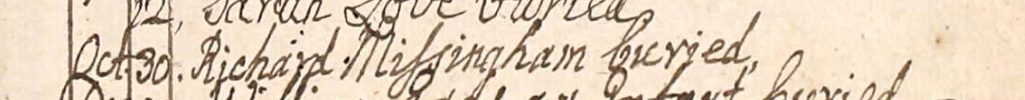 12, Sarah Love buried
Oct. 30. Richard Missingham buried,
an Infant buried